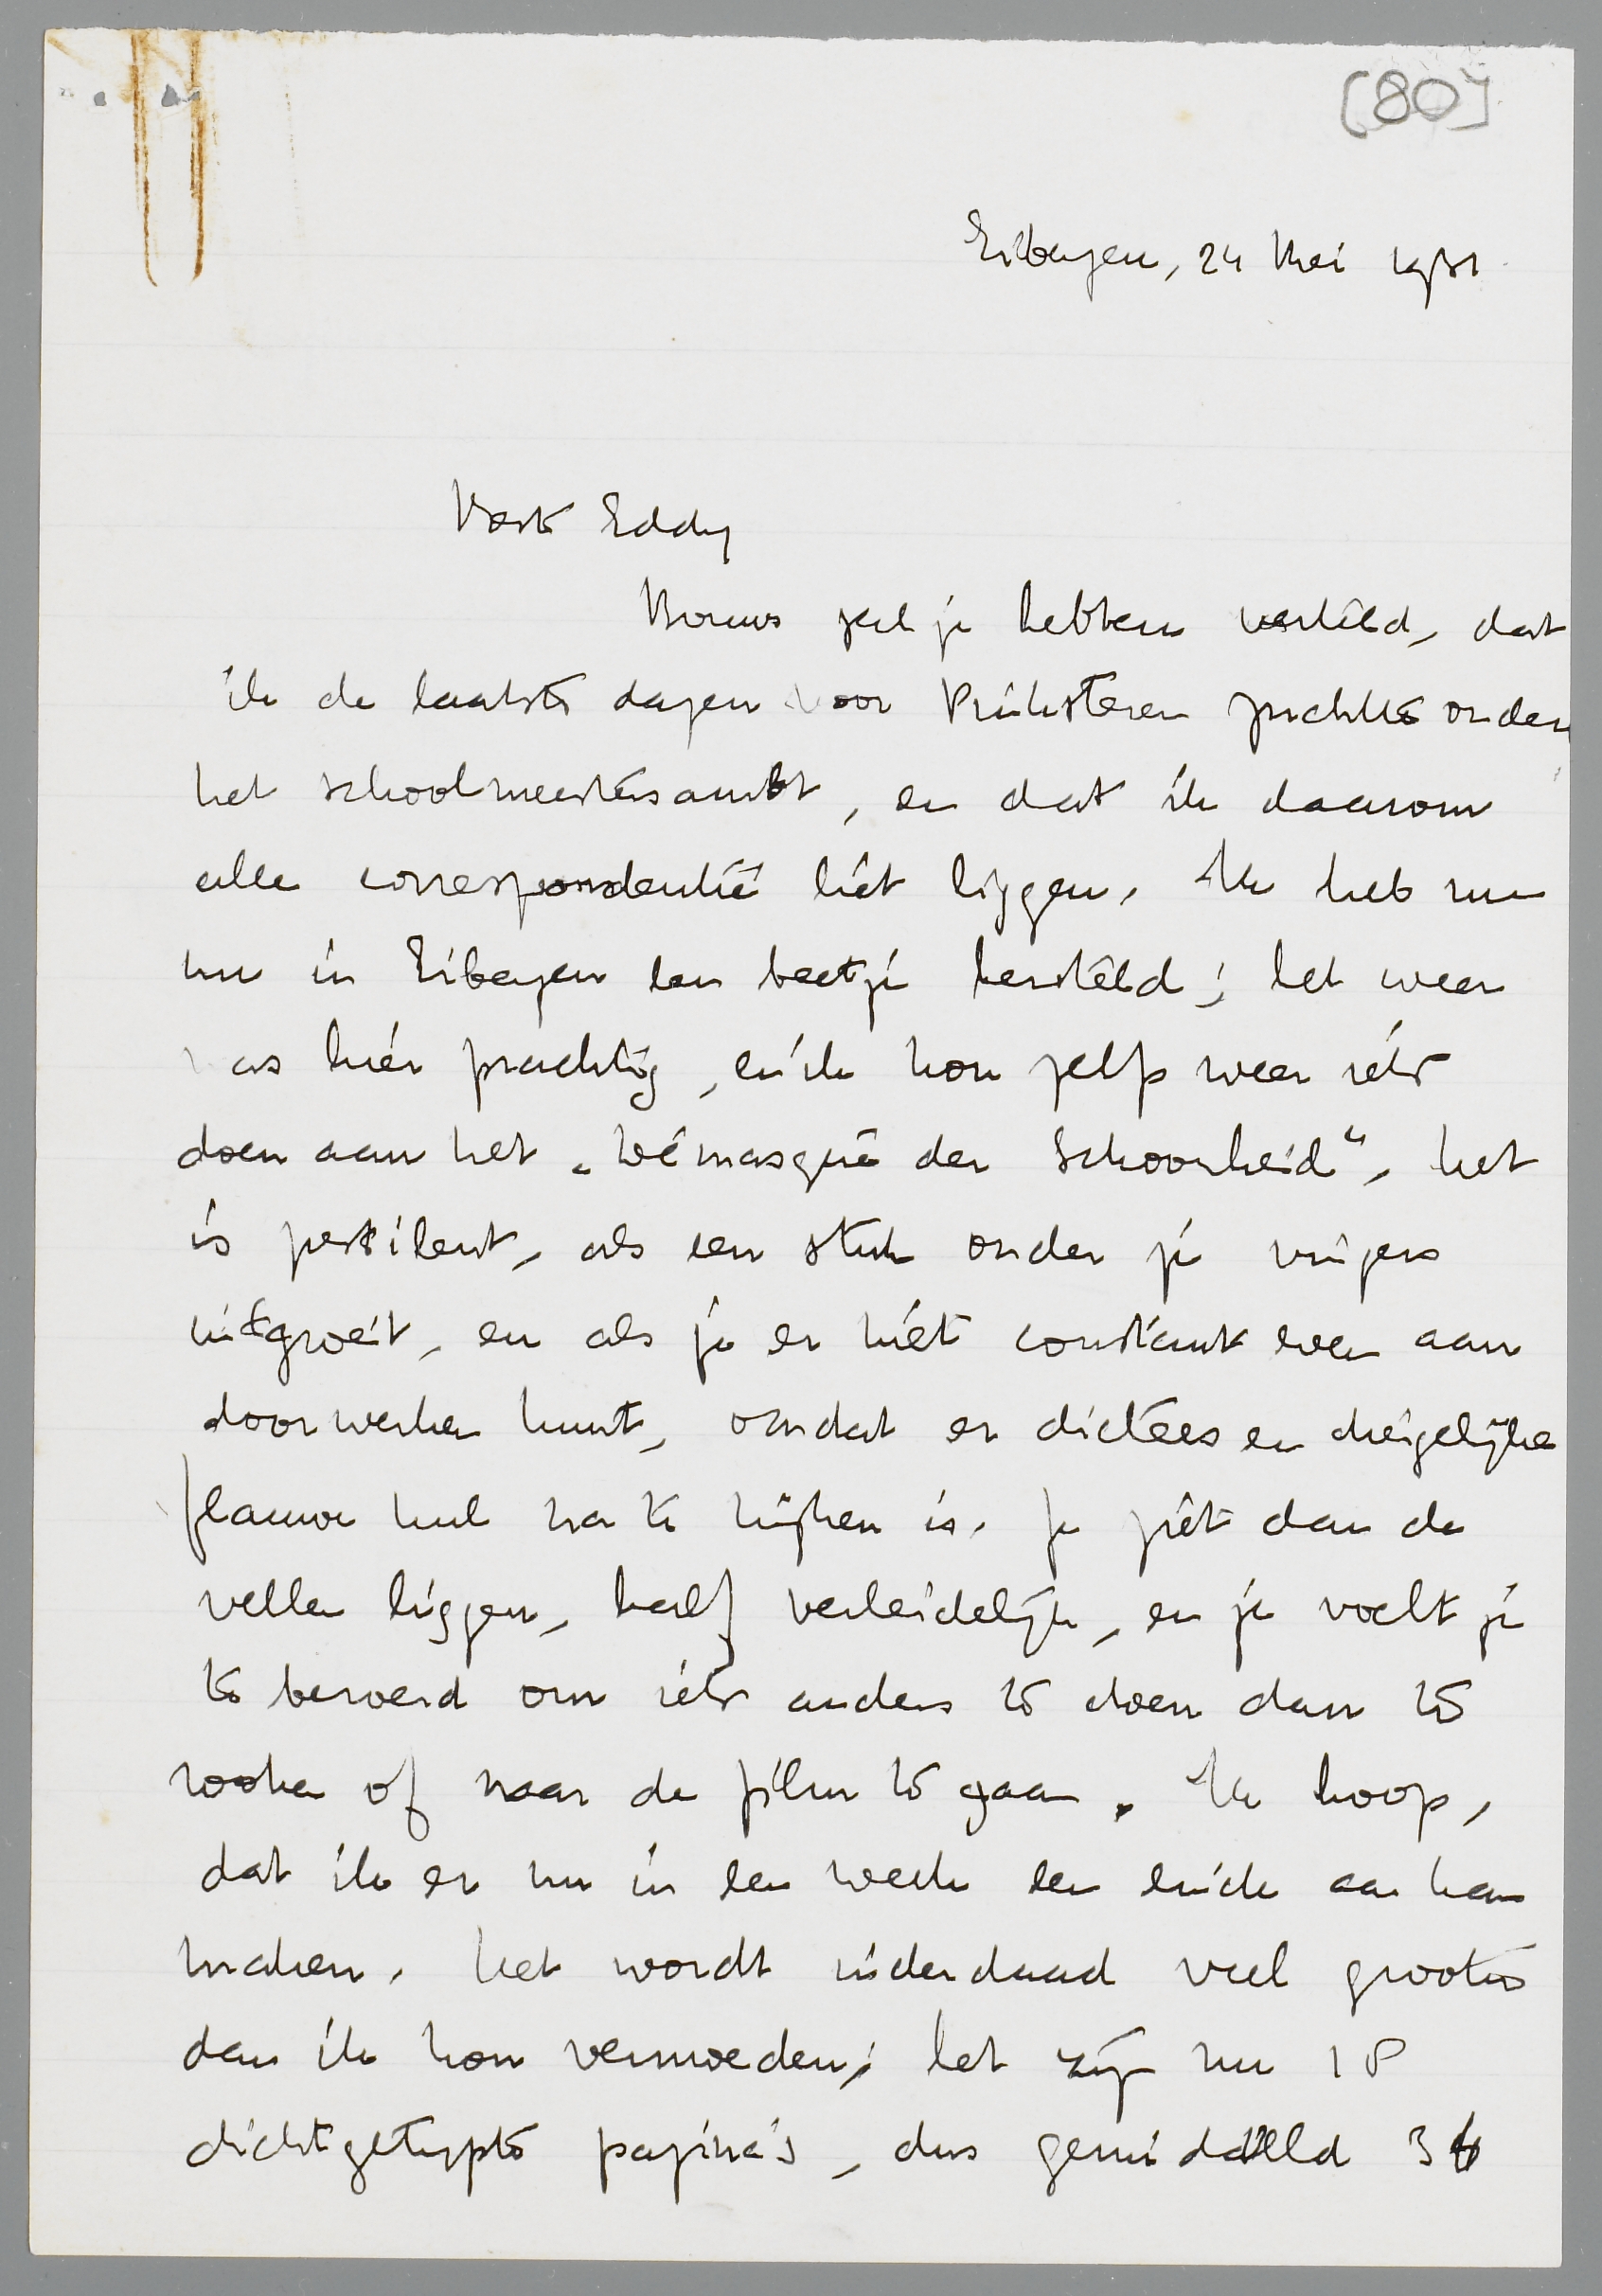 [80]
Eibergen, 24 Mei 1931
Beste Eddy
Bouws zal je hebben verteld, dat
ik de laatste dagen voor Pinksteren zuchtte onder
het schoolmeestersambt, en dat ik daarom
alle correspondentie liet liggen. Ik heb me
nu in Eibergen een beetje hersteld; het weer
was hier prachtig, en ik kon zelfs weer iets
doen aan het „Démasqué der Schoonheid“, het
is pestilent, als een stuk onder je vingers
uitgroeit, en als je er niet constant even aan
doorwerken kunt, omdat er dictees en dergelijke
flauwe kul na te kijken is. Je ziet dan de
vellen liggen, half verleidelijk, en je voelt je
te beroerd om iets anders te doen dan te
rooken of naar de film te gaan. Ik hoop,
dat ik er nu in een week een einde aan kan
maken. Het wordt inderdaad veel grooter
dan ik kon vermoeden; het zijn nu 18
dichtgetypte pagina's, dus gemiddeld 36